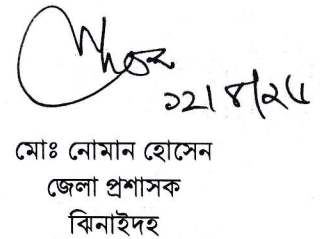 ১২/৪/২৬
মোঃ নোমান হোসেন
জেলা প্রশাসক
ঝিনাইদহ